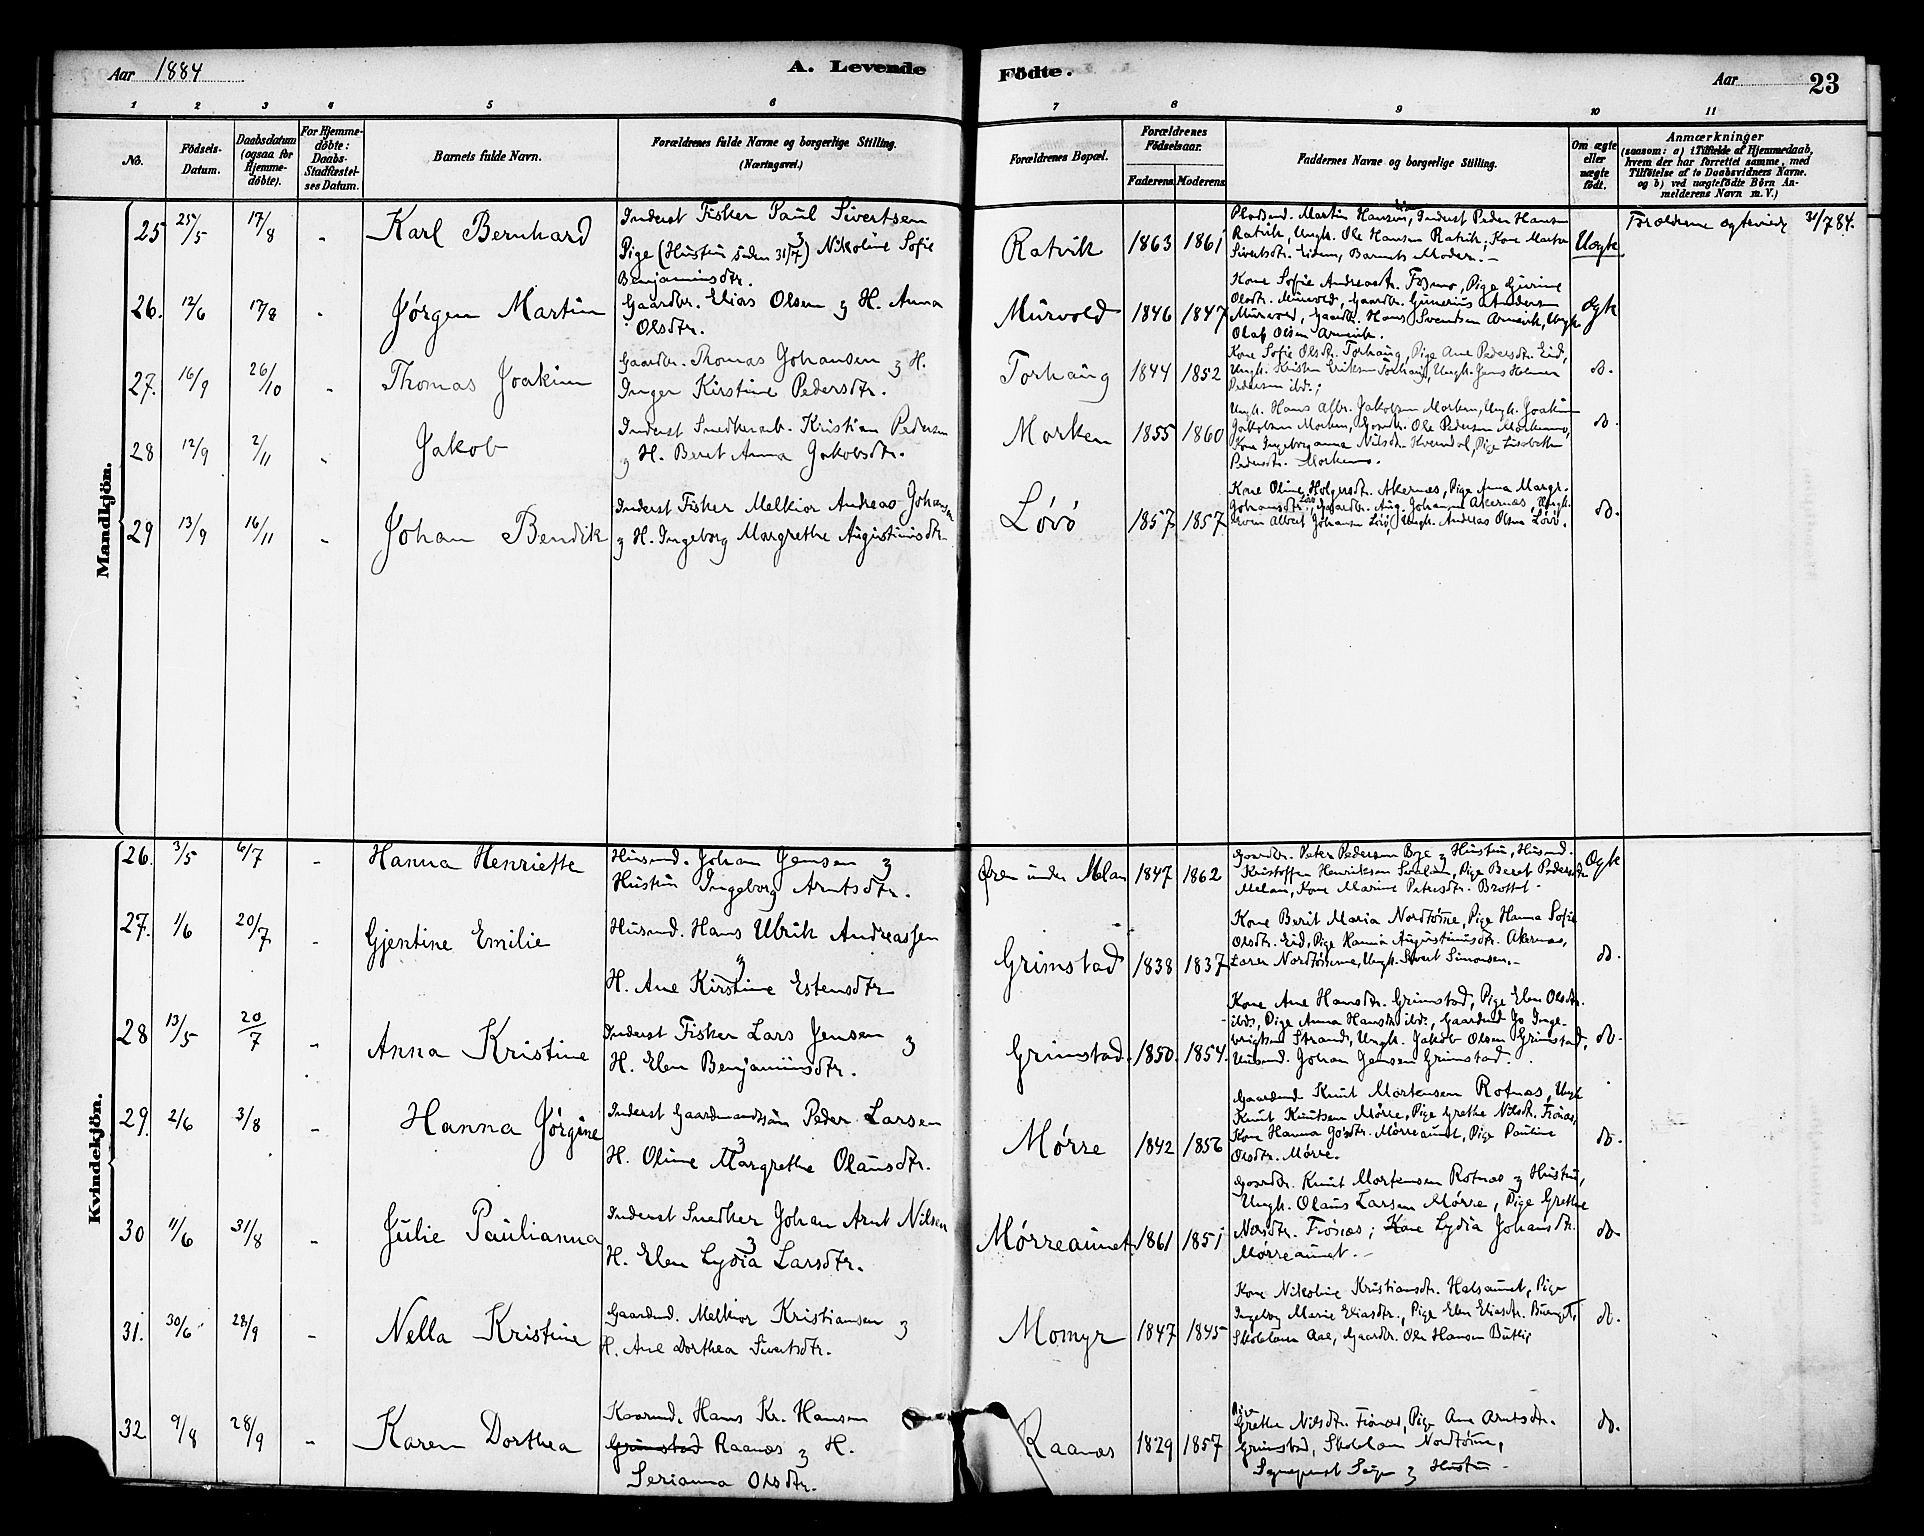 Aar 1884
A. Levende
Födte.
Aar
23
1 2 3 4 5 6 7 8 9 10 11
No.
Födsels-
Datum.
Daabsdatum
(ogsaa for
Hjemme-
döbte).
For Hjemme-
döbte:
Daabs-
Stadfæstel-
ses Datum.
Barnets fulde Navn.
Forældrenes fulde Navne og borgerlige Stilling.
(Næringsvei.)
Forældrenes Bopæl.
Forældrenes
Födselsaar.
Faderens Moderens
Faddernes Navne og borgerlige Stilling.
Om ægte
eller
uægte
födt.
Anmærkninger
(saasom: a) i Tilfælde af Hjemmedaab,
hvem der har forrettet samme, med
Tilföielse af to Daabsvidners Navne.
og b) ved uægtefödte Börn An-
melderens Navn m. V.)
Mandkjön.
25 25/5 17/8 - Karl Bernhard
Inderst Fisker Paul Sivertsen
Pige (Hustru siden 31/7) Nikoline Sofie
Benjaminsdtr.
Ratvik 1863 1861
Martin Hansen, Inderst Peder Hansen
Ratvik, Ungk. Ole Hansen Ratvik, Kone Marta
Sivertsdtr. Eidem, Barnets Moder. -
Uægte
31/7 84.
26. 12/6 17/8 - Jørgen Martin
Gaardbr. Elias Olsen og H. Anna
Olsdtr.
Murvold 1846 1847
Kone Sofie Andreasdtr. Fosmo, Pige Gurine
Olsdtr. Murvold, Gaardbr. Gunerius Andersen
Murvold, Gaardbr. Hans Svendsen Arnevik, Ungk.
Olaf Olsen Arnevik.
Ægte
27. 16/9 26/10 - Thomas Joakim
Gaardbr. Thomas Johansen og H.
Inger Kirstine Pedersdtr.
Torhaug 1844 1852
Kone Sofie Olsdtr. Torhaug, Pige Ane Pedersdtr. Eid,
Ungk. Kristen Eriksen Torhaug, Ungk. Jens
Pedersen ibd.;
do.
28 12/9 2/11 - Jakob
Inderst Snedkerarb. Kristian Pedersen
og H. Beret Anna Jakobsdtr.
Morken 1855 1860
Ungk. Hans Albr. Jakobsen Morken, Ungk. Joakim
Jakobsen Morken, Gaardbr. Ole Pedersen Morkemo,
Kone Ingeboranna Nilsdtr. Pige Lisabeth
Pedersdtr. Morkemo.
do.
29 13/9 16/11 - Johan Bendik
Inderst Fisker Melkior Andreas Johansen
og H. Ingeborg Margrethe Augustinusdtr.
Lövö 1857 1857
Kone Oline Holgersdtr. Akernæs, Pige Anna Margr.
Johansdtr. Gaardbr. Aug. Johansen Akernæs, Ungk.
Albert Johansen Lövö, Ungk. Andreas Olsen Lövö.
do.
Kvindekjön.
26. 3/5 6/7 - Hanna Henriette
Husmd. Johan Jensen og
Hustru Ingeborg Arntsdtr.
Øren under Melan 1847 1862
Gaardbr. Peter Pedersen Bye og Hustru, Husmd.
Kristoffer Henriksen Pige Beret Pedersdtr.
Melan, Kone Marine Petersdtr. Brottet -
Ægte
27. 1/6 20/7 - Gjentine Emilie
Husmd. Hans Ulrik Andreassen
og
H. Ane Kirstine Estensdtr
Grimstad 1838 1837
Kone Berit Maria Nordtömme, Pige Hanna Sofie
Olsdtr. Eid, Pige Hanna Augustinusdtr. Akernæs,
Lærer Nordtömme, Ungk. Sivert Simonsen. -
do.
28 13/5 20/7 - Anna Kristine
Inderst Fisker Lars Jensen og
H. Elen Benjaminsdtr.
Grimstad. 1850. 1854.
Kone Ane Hansdtr. Grimstad, Pige Elen Olsdtr.
ibd., Pige Anna Hansdtr ibd., Gaardmd Jo Inge-
brigtsen Strand, Ungk. Jakob Olsen Grimstad,
Husmd. Johan Jensen Grimstad.
do.
29. 2/6 3/8 - Hanna Jørgine
Inderst Gaardmandssøn Peder Larsen
og
H. Oline Margrethe Olausdtr.
Mørre 1842 1856
Gaardmd Knut Mortensen Rotnæs, Ungk
Knut Knutsen Mørre, Pige Grethe Nilsdtr. Fiönæs,
Kone Hanna Josdtr. Mørreaunet, Pige Pauline
Olsdtr. Mørre.
do.
30 11/6 31/8 - Julie Paulianna
Inderst Snedker Johan Arnt Nilsen
og
H. Elen Lydia Larsdtr.
Mørreaunet 1861 1851
Gaardbr. Knut Mortensen Rotnæs og Hustru,
Ungk. Olaus Larsen Mørre, Pige Grethe
Nilsdtr. Fiönæs; Kone Lydia Johansdtr.
Mørreaunet. -
do
31. 30/6 28/9 - Nella Kristine
Gaardmd. Melkior Kristiansen og
H. Ane Dorthea Sivertsdtr.
Momyr 1847 1845
Kone Nikoline Kristiansdtr. Halsaunet, Pige
Ingeborg Marie Eliasdtr., Pige Elen Eliasdtr.
Skolelærer Aae, Gaardbr. Ole Hansen Butli,
do.
32 9/8 28/9 - Karen Dorthea
Kaarmd. Hans Kr. Hansen
Grimstad Raanæs og H.
Serianna Olsdtr.
Raanæs 1829 1857
Pige
Grethe Nilsdtr. Fiönæs, Pige Ane Arntsdtr.
Grimstad, Skolelærer Nordtömme,
Sognepræst og Hustru -
do.